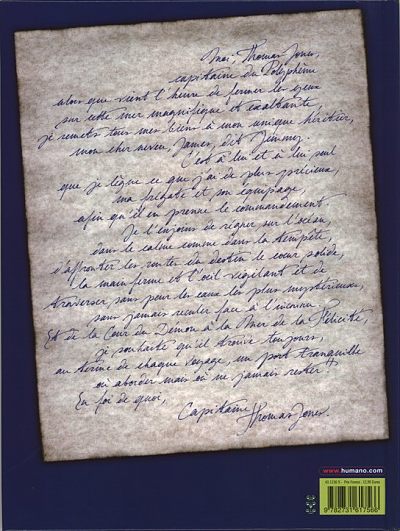 Moi, Thomas Jones,
capitaine du Polyphème
alors que vient l'heure de fermer les yeux
sur cette mer magnifique et exaltante,
je remets tous mes biens à mon unique héritier,
mon cher neveu, James, dit Jimmy.
C'est à lui et à lui seul
que je lègue ce que j'ai de plus précieux,
ma frégate et son équipage,
afin qu'il en prenne le commandement
Je l'enjoins de régner sur l'océan,
dans le calme comme dans la tempête,
d'affronter les routes du destin le cœur solide,
la main ferme et l'œil vigilant et de
traverser sans peur les eaux les plus mystérieuses,
sans jamais reculer face à l'inconnu.
Et de la Cour du Démon à la Mer de la Félicité,
je souhaite qu'il trouve toujours,
au terme de chaque voyage, un port tranquille
où aborder mais où ne jamais rester
En foi de quoi,
Capitaine Thomas Jones
www.humano.com
9 782731 617566